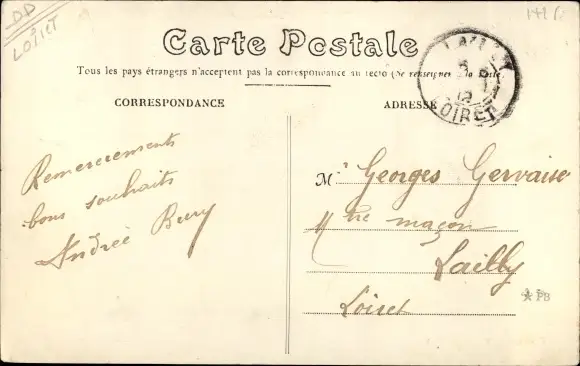 DD
LOIRET
Carte Postale
Tous les pays étrangers n'acceptent pas la correspondance au recto (Se renseigner à la Poste)
CORRESPONDANCE
ADRESSE
LOIRET
Remerciements
bons souhaits
Andrée Bury
Mr Georges Gervaise
maçon
Lailly
Loiret
PB